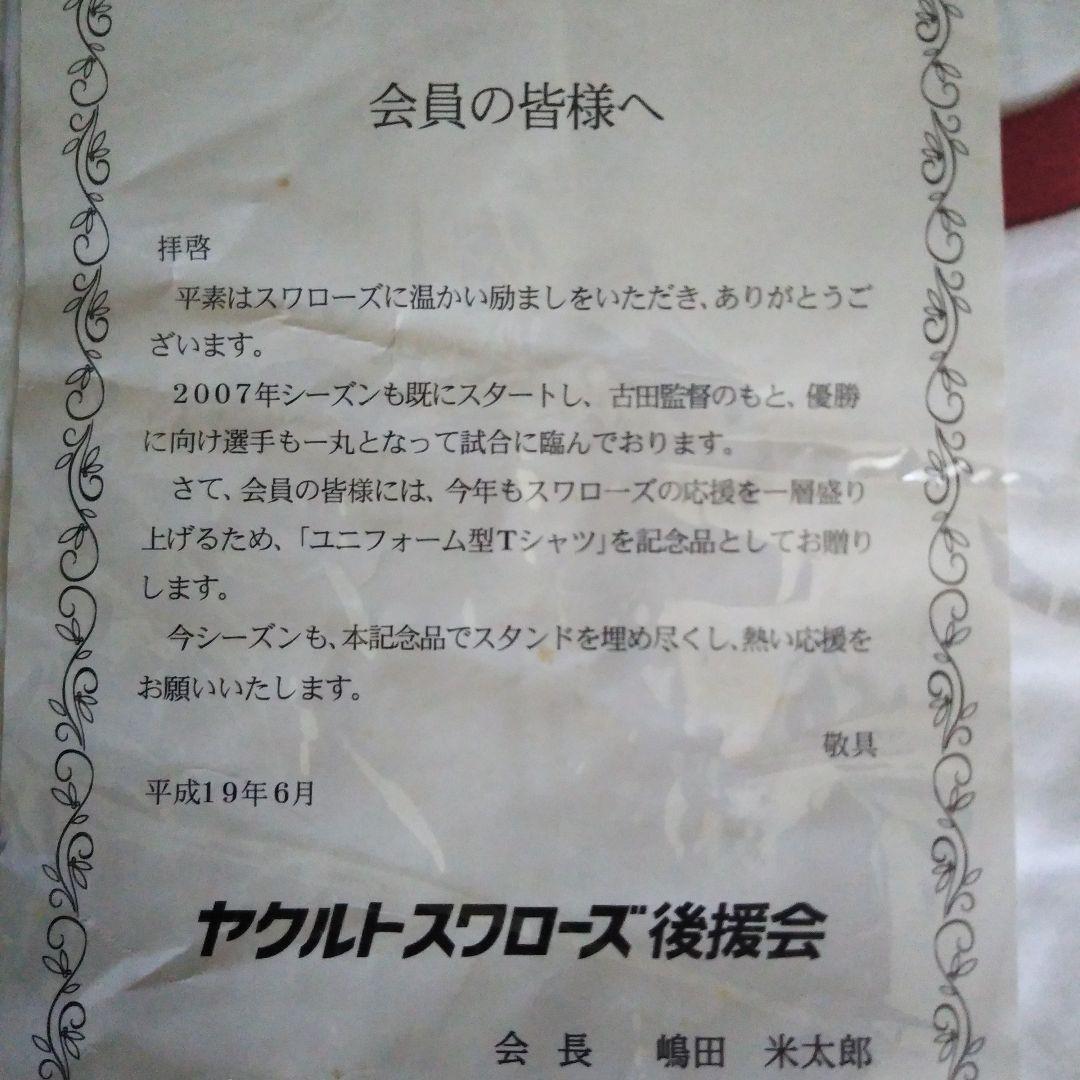 会員の皆様へ
拝啓
平素はスワローズに温かい励ましをいただき、ありがとうご
ざいます。
2007年シーズンも既にスタートし、古田監督のもと、優勝
に向け選手も一丸となって試合に臨んでおります。
さて、会員の皆様には、今年もスワローズの応援を一層盛り
上げるため、「ユニフォーム型Tシャツ」を記念品としてお贈り
します。
今シーズンも、本記念品でスタンドを埋め尽くし、熱い応援を
お願いいたします。
敬具
平成19年6月
ヤクルトスワローズ後援会
会長 嶋田 米太郎